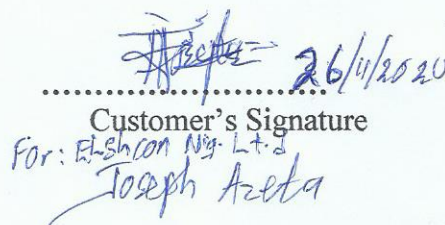 26/11/2020
Customer's Signature
For: Elshcon Nig. Ltd
Joseph Azeta